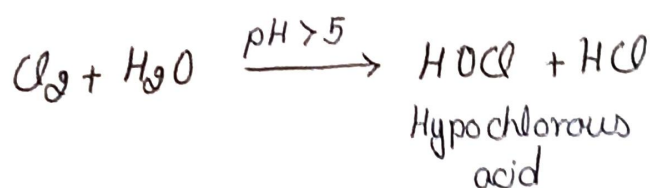 Cl₂ + H₂O \xrightarrow{pH > 5} HOCl + HCl
Hypochlorous
acid